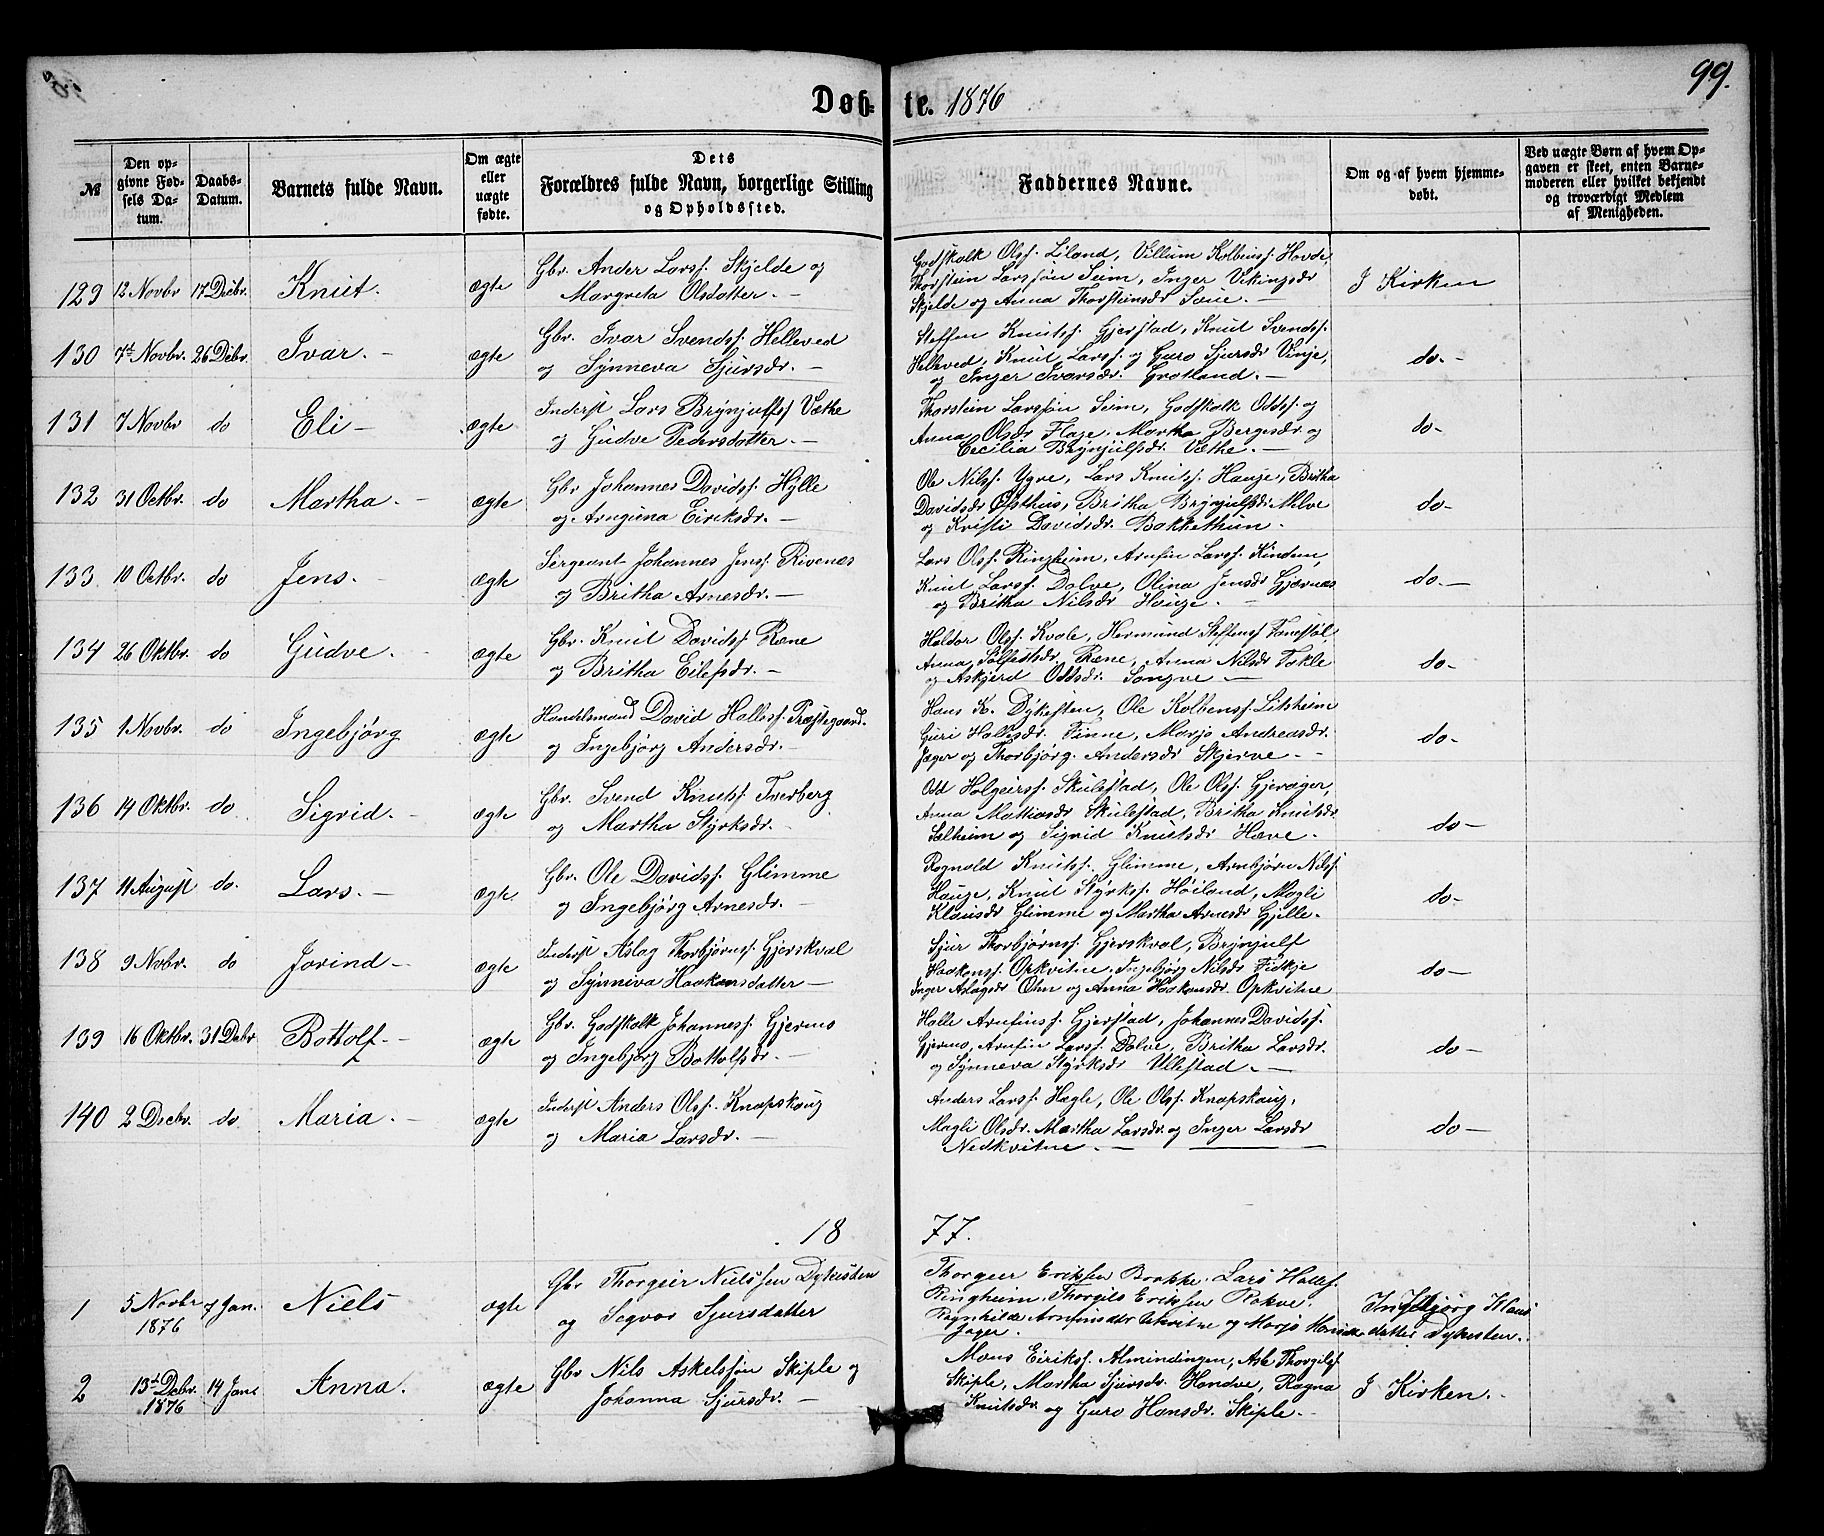 99.
Døb- te. 1876
№
Den op-
givne Fød-
sels Da-
tum.
Daabs-
Datum.
Barnets fulde Navn.
Om ægte
eller
uægte
fødte.
Dets
Forældres fulde Navn, borgerlige Stilling
og Opholdssted.
Faddernes Navne.
Om og af hvem hjemme-
døbt.
Ved uægte Børn af hvem Op-
gaven er skeet, enten Barne-
moderen eller hvilket bekjendt
og troværdigt Medlem
af Menigheden.
129 12 Novbr 17 Decbr. Knut. ægte
Gbr. Ander Larss. Skjelde og
Margreta Olsdatter. —
Godskalk Olss. Liland, Villum Kolbeinss. Hovde,
Thorstein Larssøn Seim, Inger Vikingsdr
Skjelde og Anna Thorsteinsdr Saue. —
I Kirken
130 7de Novbr. 26 Debr. Ivar. — ægte
Gbr. Ivar Svendss. Helleved
og Synneva Sjursdr. —
Steffen Knutss. Gjerstad, Knut Svendss.
Helleved, Knut Larss. og Guro Sjursdr Vinje,
og Inger Ivarsdr. Grotland. —
do. —
131 7 Novbr do Eli — ægte
Inderst Lars Brynjulfss Væthe
og Gudve Pedersdatter. —
Thorstein Larssøn Seim, Godskalk Oddss. og
Anna Olsdr Flage. Martha Bergesdr. og
Cecilia Brynjulfsdr. Væthe. —
do —
132 31 Octbr. do Martha. — ægte
Gbr Johannes Davidss. Hylle
og Arnguna Eiriksdr. —
Ole Nilss. Ygre, Lars Knutss. Hauge, Britha
Davidsdr Østhus, Britha Brynjulfsdr. Melve
og Kristi Davidsdr. Bakkethun.
do —
133 10 Octbr. do Jens. — ægte
Sergeant Johannes Jenss. Rivenæs
og Britha Arnesdr. —
Lars Olss. Ringheim, Arnfin Larss. Kindem,
Knut Larss. Dolve, Olina Jensdr Gjærnæs
og Britha Nilsdr Hauge. —
do. —
134 26 Oktbr. do Gudve. ægte
Gbr. Knut Davidss. Rene
og Britha Eilefsdr. —
Haldor Olss. Kvale, Hermund Steffenss
Anna Sølfestsdr. Rene, Anna Nilsdr Tokle
og Askjerd Oddsdr. Songve —
do —
135 1 Novbr. do Ingebjørg ægte
Handelsmand David Halless. Præstegaard.
og Ingebjørg Andersdr. —
Hans K. Dykesten, Ole Kolbenss. Litsheim
Guri Hallesdr. Finne, Marjo Andreasdr.
Jæger og Thorbjørg Andersdr Skjerve. —
do —
136 14 Oktbr. do Sigrid. — ægte
Gbr. Svend Knutss. Tverberg
og Martha Styrksdr. —
Odd Holgeirss. Skulestad, Ole Olss. Gjerager,
Anna Matiasdr Skulestad, Britha Knutsdr.
Sælheim og Sigrid Knutsdr. Hæve. —
do —
137 11 August do. Lars. — ægte.
Gbr. Ole Davidss. Glimme
og Ingebjørg Arnesdr. —
Ragnald Knutss. Glimme, Arnbjørn Nilss.
Hauge, Knut Styrkss. Høiland, Magli
Klausdr Glimme og Martha Arnesdr Gjelle.
do —
138 9 Nvbr. do Jorind — ægte
Inderst Aslag Thorbjørnss. Gjerskval
og Synniva Haakonsdatter —
Sjur Thorbjørnss. Gjerskval, Brynjulf
Haakonss. Opkvitne, Ingebjørg Nilsdr Fidkje
Inger Aslagsdr Ohn og Anna Haakonsdr. Opkvitne
do —
139 16 Oktbr. 31 Debr Bottolf. — ægte
Gbr. Godskalk Johanness. Gjernes
og Ingebjørg Bottolfsdr. —
Halle Arnfinss. Gjerstad, Johannes Davidss.
Gjernes, Arnfin Larss. Dolve, Britha Larsdr.
og Synneva Styrksdr Ullestad. —
do —
140 2 Decbr. do Maria. — ægte
Inderst Anders Olss. Knapskaug
og Maria Larsdr. —
Anders Larss. Hægle, Ole Olss. Knapskaug,
Magli Olsdr. Martha Larsdr. og Inger Larsdr
Nedkvitne. —
do —
18 77.
1 5 Novbr 1876 7 Jan. Niels ægte
Gbr Thorgeir Nielssen Dykesten
og Segvor Sjursdatter
Thorgeir Eriksen Brakke. Lars Halless.
Ringheim. Thorgils Eriksen Rokve.
Ragnhilde Arnfinsdtr og Marjo Hansdr
Jæger.
Ingebjørg Klaus
datter Dykesten.
2 13de Debr. 1876 14 Jan. Anna. ægte
Gbr Nils Askelssøn Skiple og
Johanna Sjursdr. —
Mons Eirikss. Almindingen, Asle Thorgilss.
Skiple, Martha Sjursdr. Handve, Ragna
Knutsdr og Guro Hansdr. Skiple. —
I Kirken. —